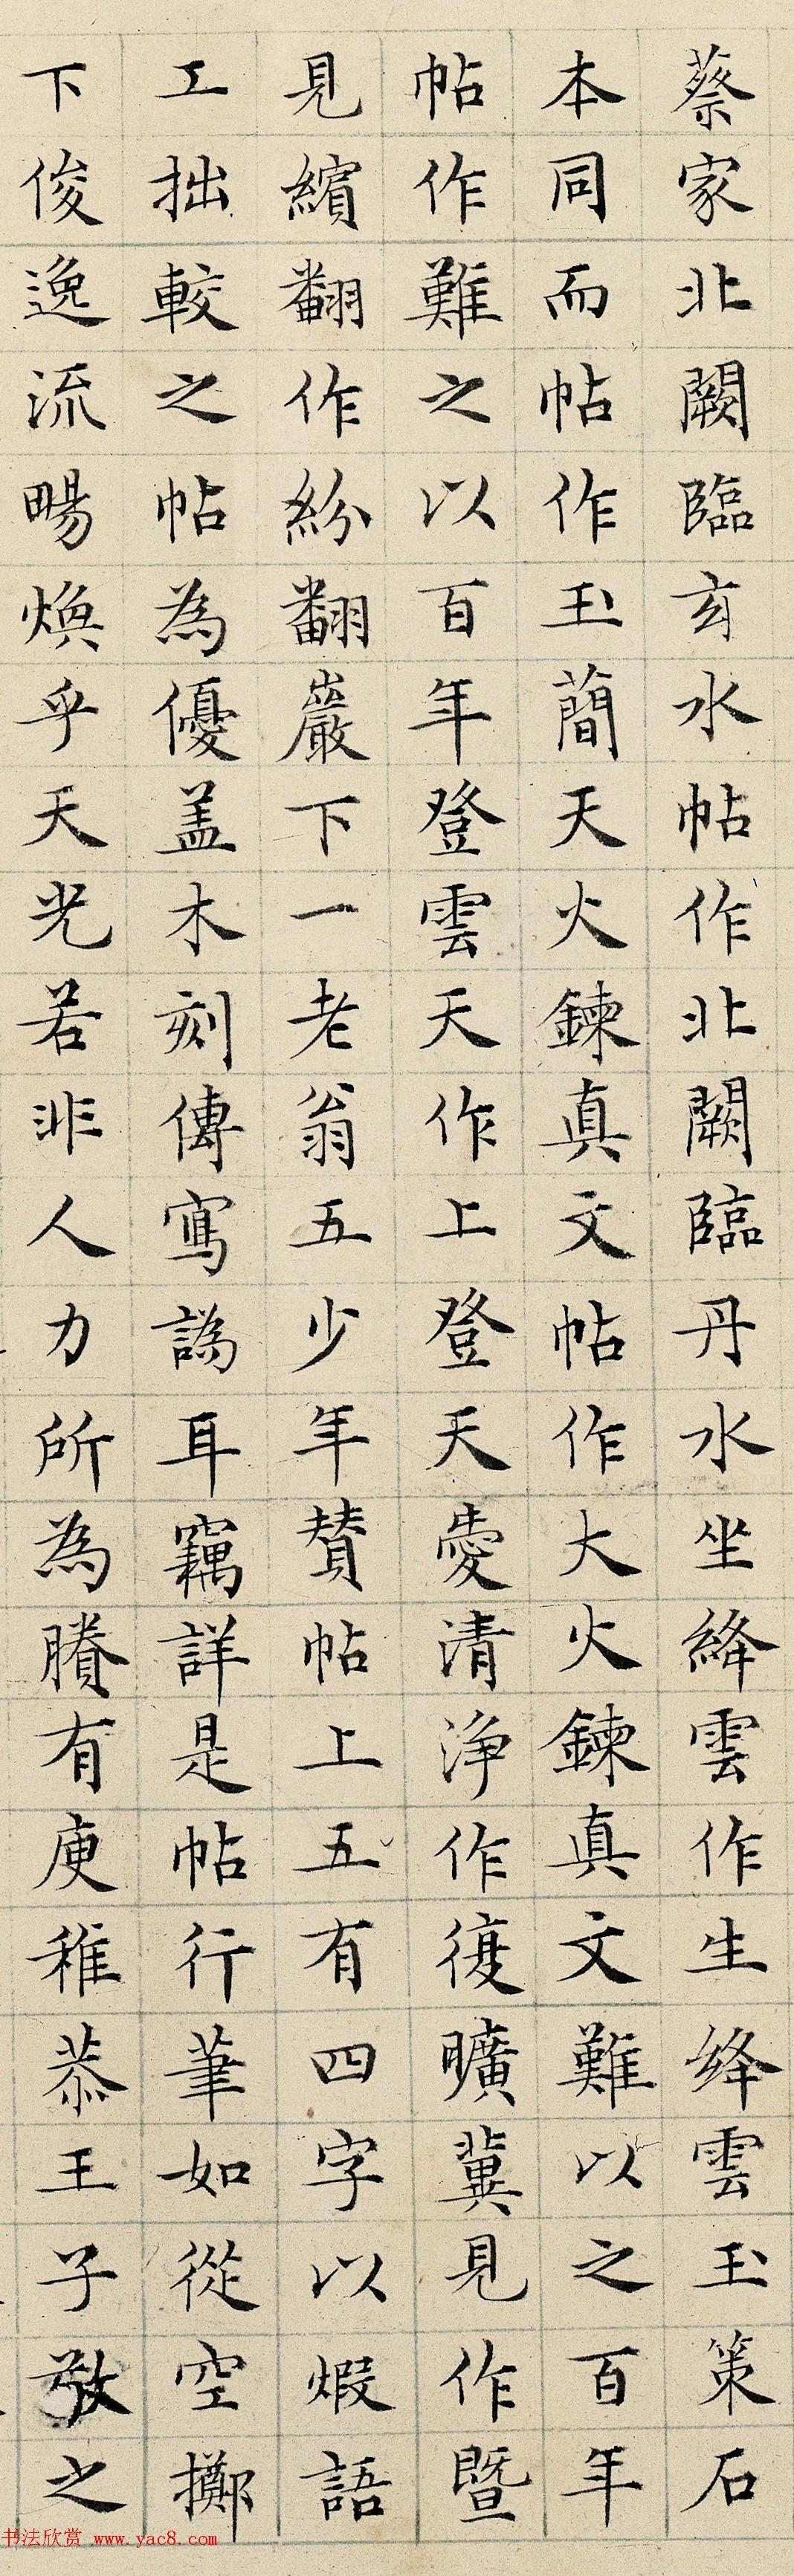 蔡家北闕臨玄水帖作北闕臨丹水坐絳雲作生絳雲玉策石
本同而帖作玉蕳天火鍊真文帖作大火鍊真文難以之百年
帖作難之以百年登雲天作上登天愛清淨作復曠冀見作暨
見繽翻作紛翻巖下一老翁五少年賛帖上五有四字以煆語
工拙較之帖為優盖木刻傳寫譌耳竊詳是帖行筆如從空擲
下俊逸流暢煥乎天光若非人力所為賸有庾稚恭王子敬之
书法欣赏 www.yac8.com